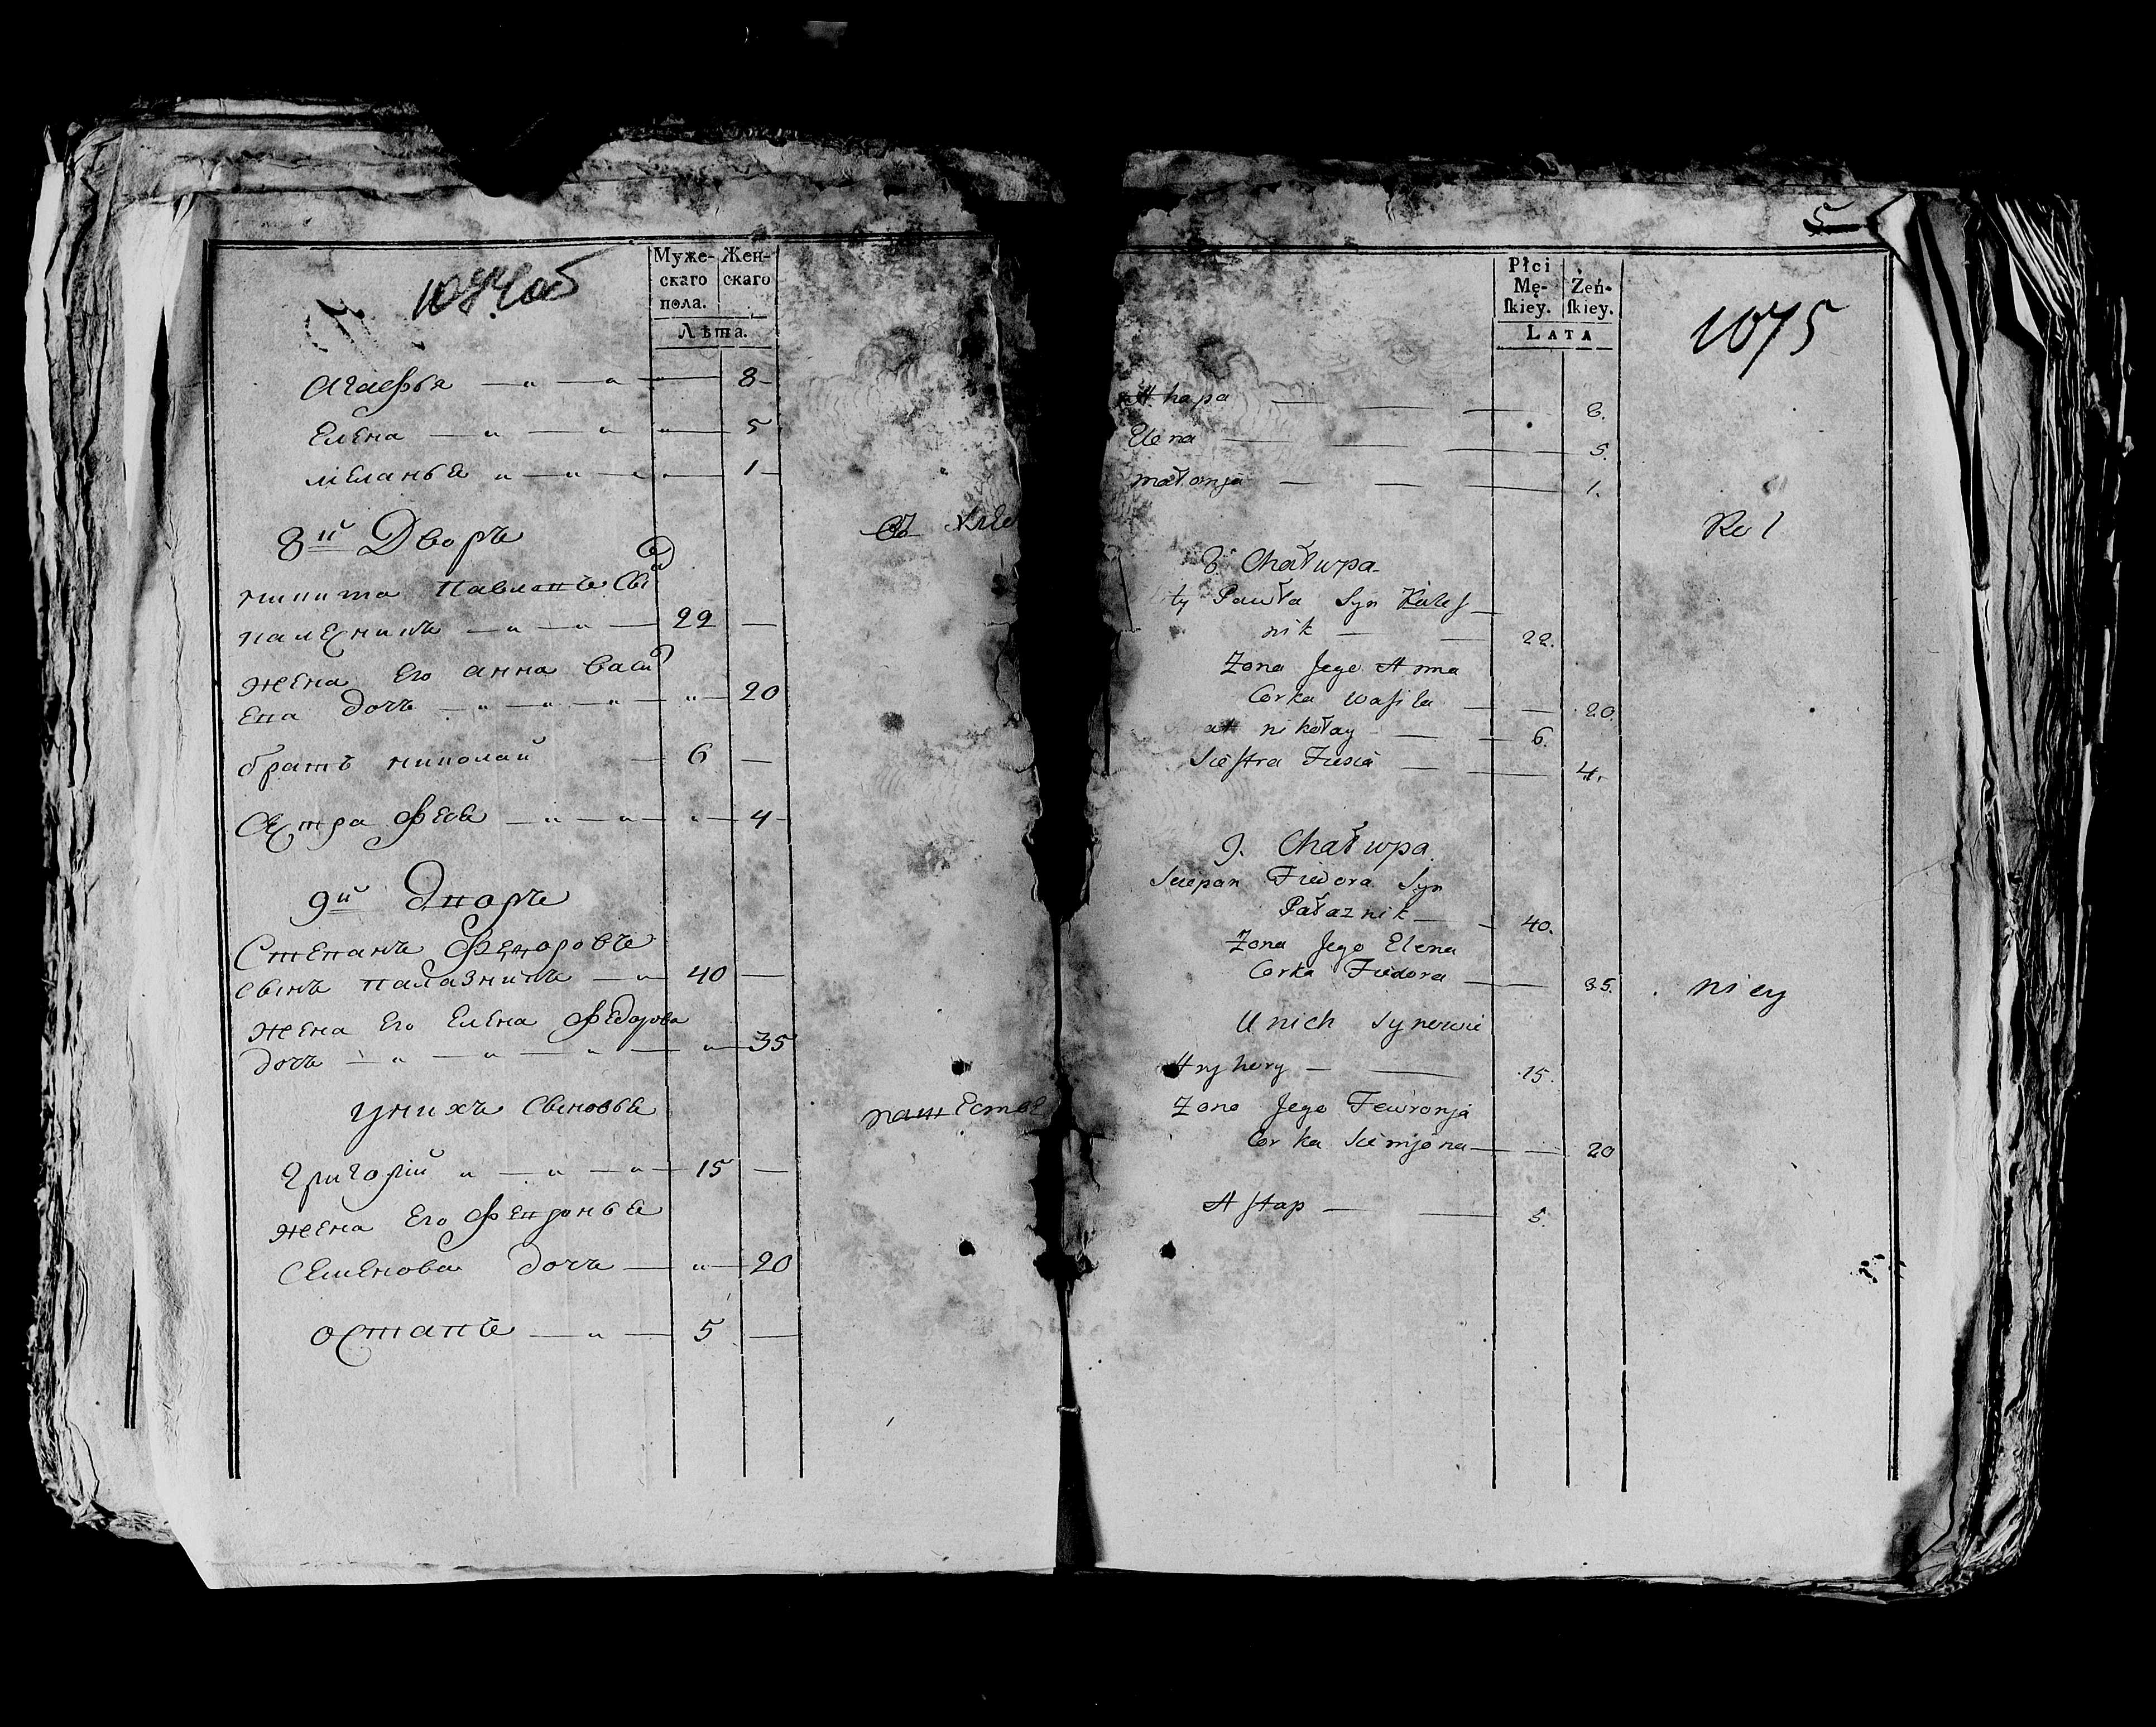 1074 об
Муже-
скаго
пола.
Жен-
скаго
Лѣта.
Агафья — 8 —
Елена — 5
меланья — 1 —
8й Дворъ
никита павловъ сы
палесникъ — 22 —
жена его анна васи
ева дочь — 20
братъ николай — 6 —
Сестра Феся — 4 —
9й Дворъ
Степанъ Федоровъ
сынъ палазникъ — 40 —
жена его елена федорова
дочь — 35
унихъ сыновья
григорій — 15 —
жена его Февронья
семенова дочь — 20
остапъ — 5 —
въ
5
Płci
Mę-
ſkiey.
Żeń-
ſkiey.
LATA
1075
Ahapa — 8.
Elena — 5.
małanja — 1.
Re l
8. Chałupa.
ty Pawła Syn Kales
nik — 22.
Zona Jego Anna
Corka Wasila — 20.
at nikołay — 6.
Siestra Fiesia — 4.
9. Chałupa.
Sciepan Fiedora Syn
Pałaznik — 40.
Zona Jego Elena
Corka Fiedora — 35.
niey
U nich Synowie
Hryhory — 15.
Zona Jego Fewronja
Corka Siemjona — 20
Astap — 5.